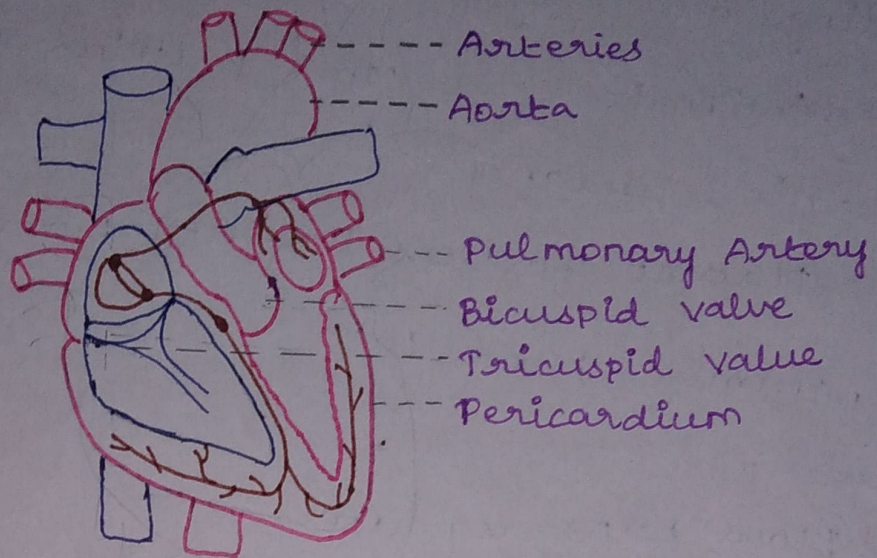 Arteries
Aorta
Pulmonary Artery
Bicuspid valve
Tricuspid value
Pericardium